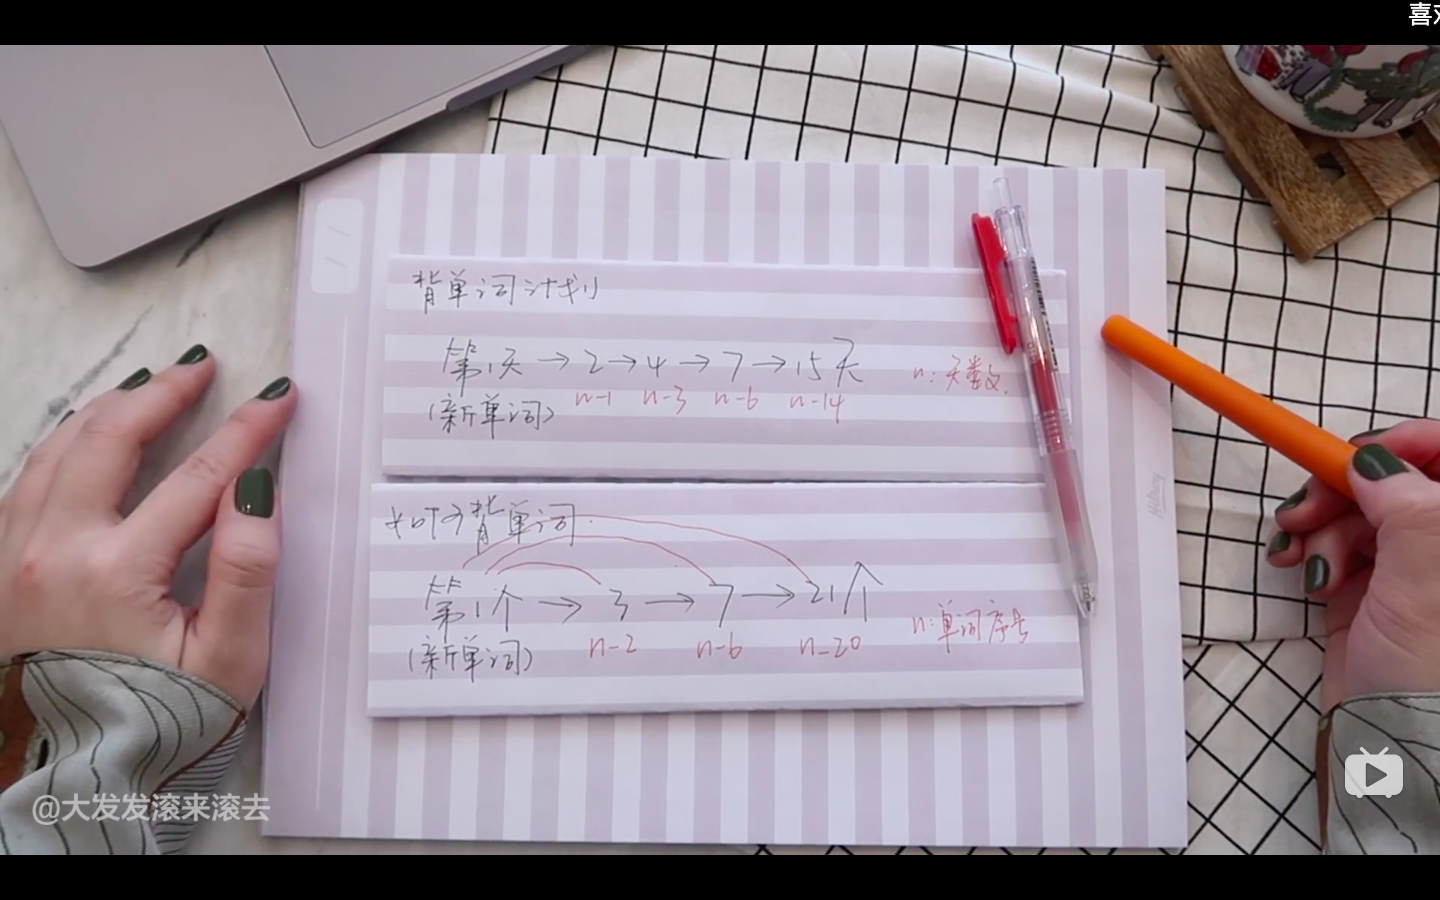 喜
背单词计划
第1天 → 2 → 4 → 7 → 15天
n-1 n-3 n-6 n-14
n:天数.
(新单词)
如何背单词.
第1个 → 3 → 7 → 21个
(新单词)
n-2 n-6 n-20
n:单词序号
@大发发滚来滚去